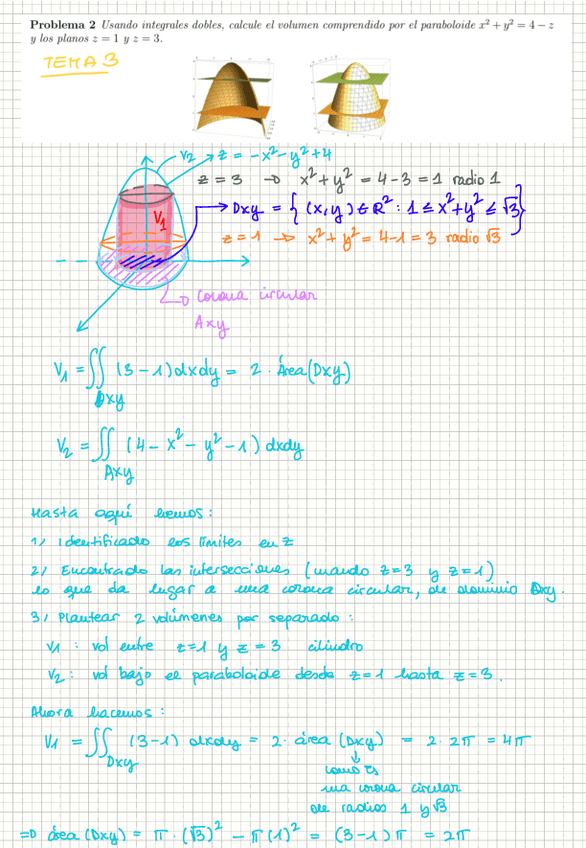 Problema 2 Usando integrales dobles, calcule el volumen comprendido por el paraboloide x² + y² = 4 − z
y los planos z = 1 y z = 3.
TEMA 3
V₂ → z = -x²-y²+4
z = 3 → x²+y² = 4-3 = 1 radio 1
V₁
Dxy = { (x,y) ∈ ℝ² : 1 ≤ x²+y² ≤ √3 }
z = 1 → x²+y² = 4-1 = 3 radio √3
corona circular
Axy
V₁ = ∬ (3-1) dxdy = 2 · Área(Dxy)
Dxy
V₂ = ∬ (4-x²-y²-1) dxdy
Axy
Hasta aquí hemos:
1) Identificado los límites en z
2) Encontrado las intersecciones (cuando z=3 y z=1)
lo que da lugar a una corona circular, de dominio Dxy.
3) Plantear 2 volúmenes por separado:
V₁ : vol entre z=1 y z=3 cilindro
V₂ : vol bajo el paraboloide desde z=1 hasta z=3.
Ahora hacemos:
V₁ = ∬ (3-1) dxdy = 2· área (Dxy) = 2·2π = 4π
Dxy
↓
como es
una corona circular
de radios 1 y √3
⇒ área (Dxy) = π·(√3)² - π(1)² = (3-1)π = 2π